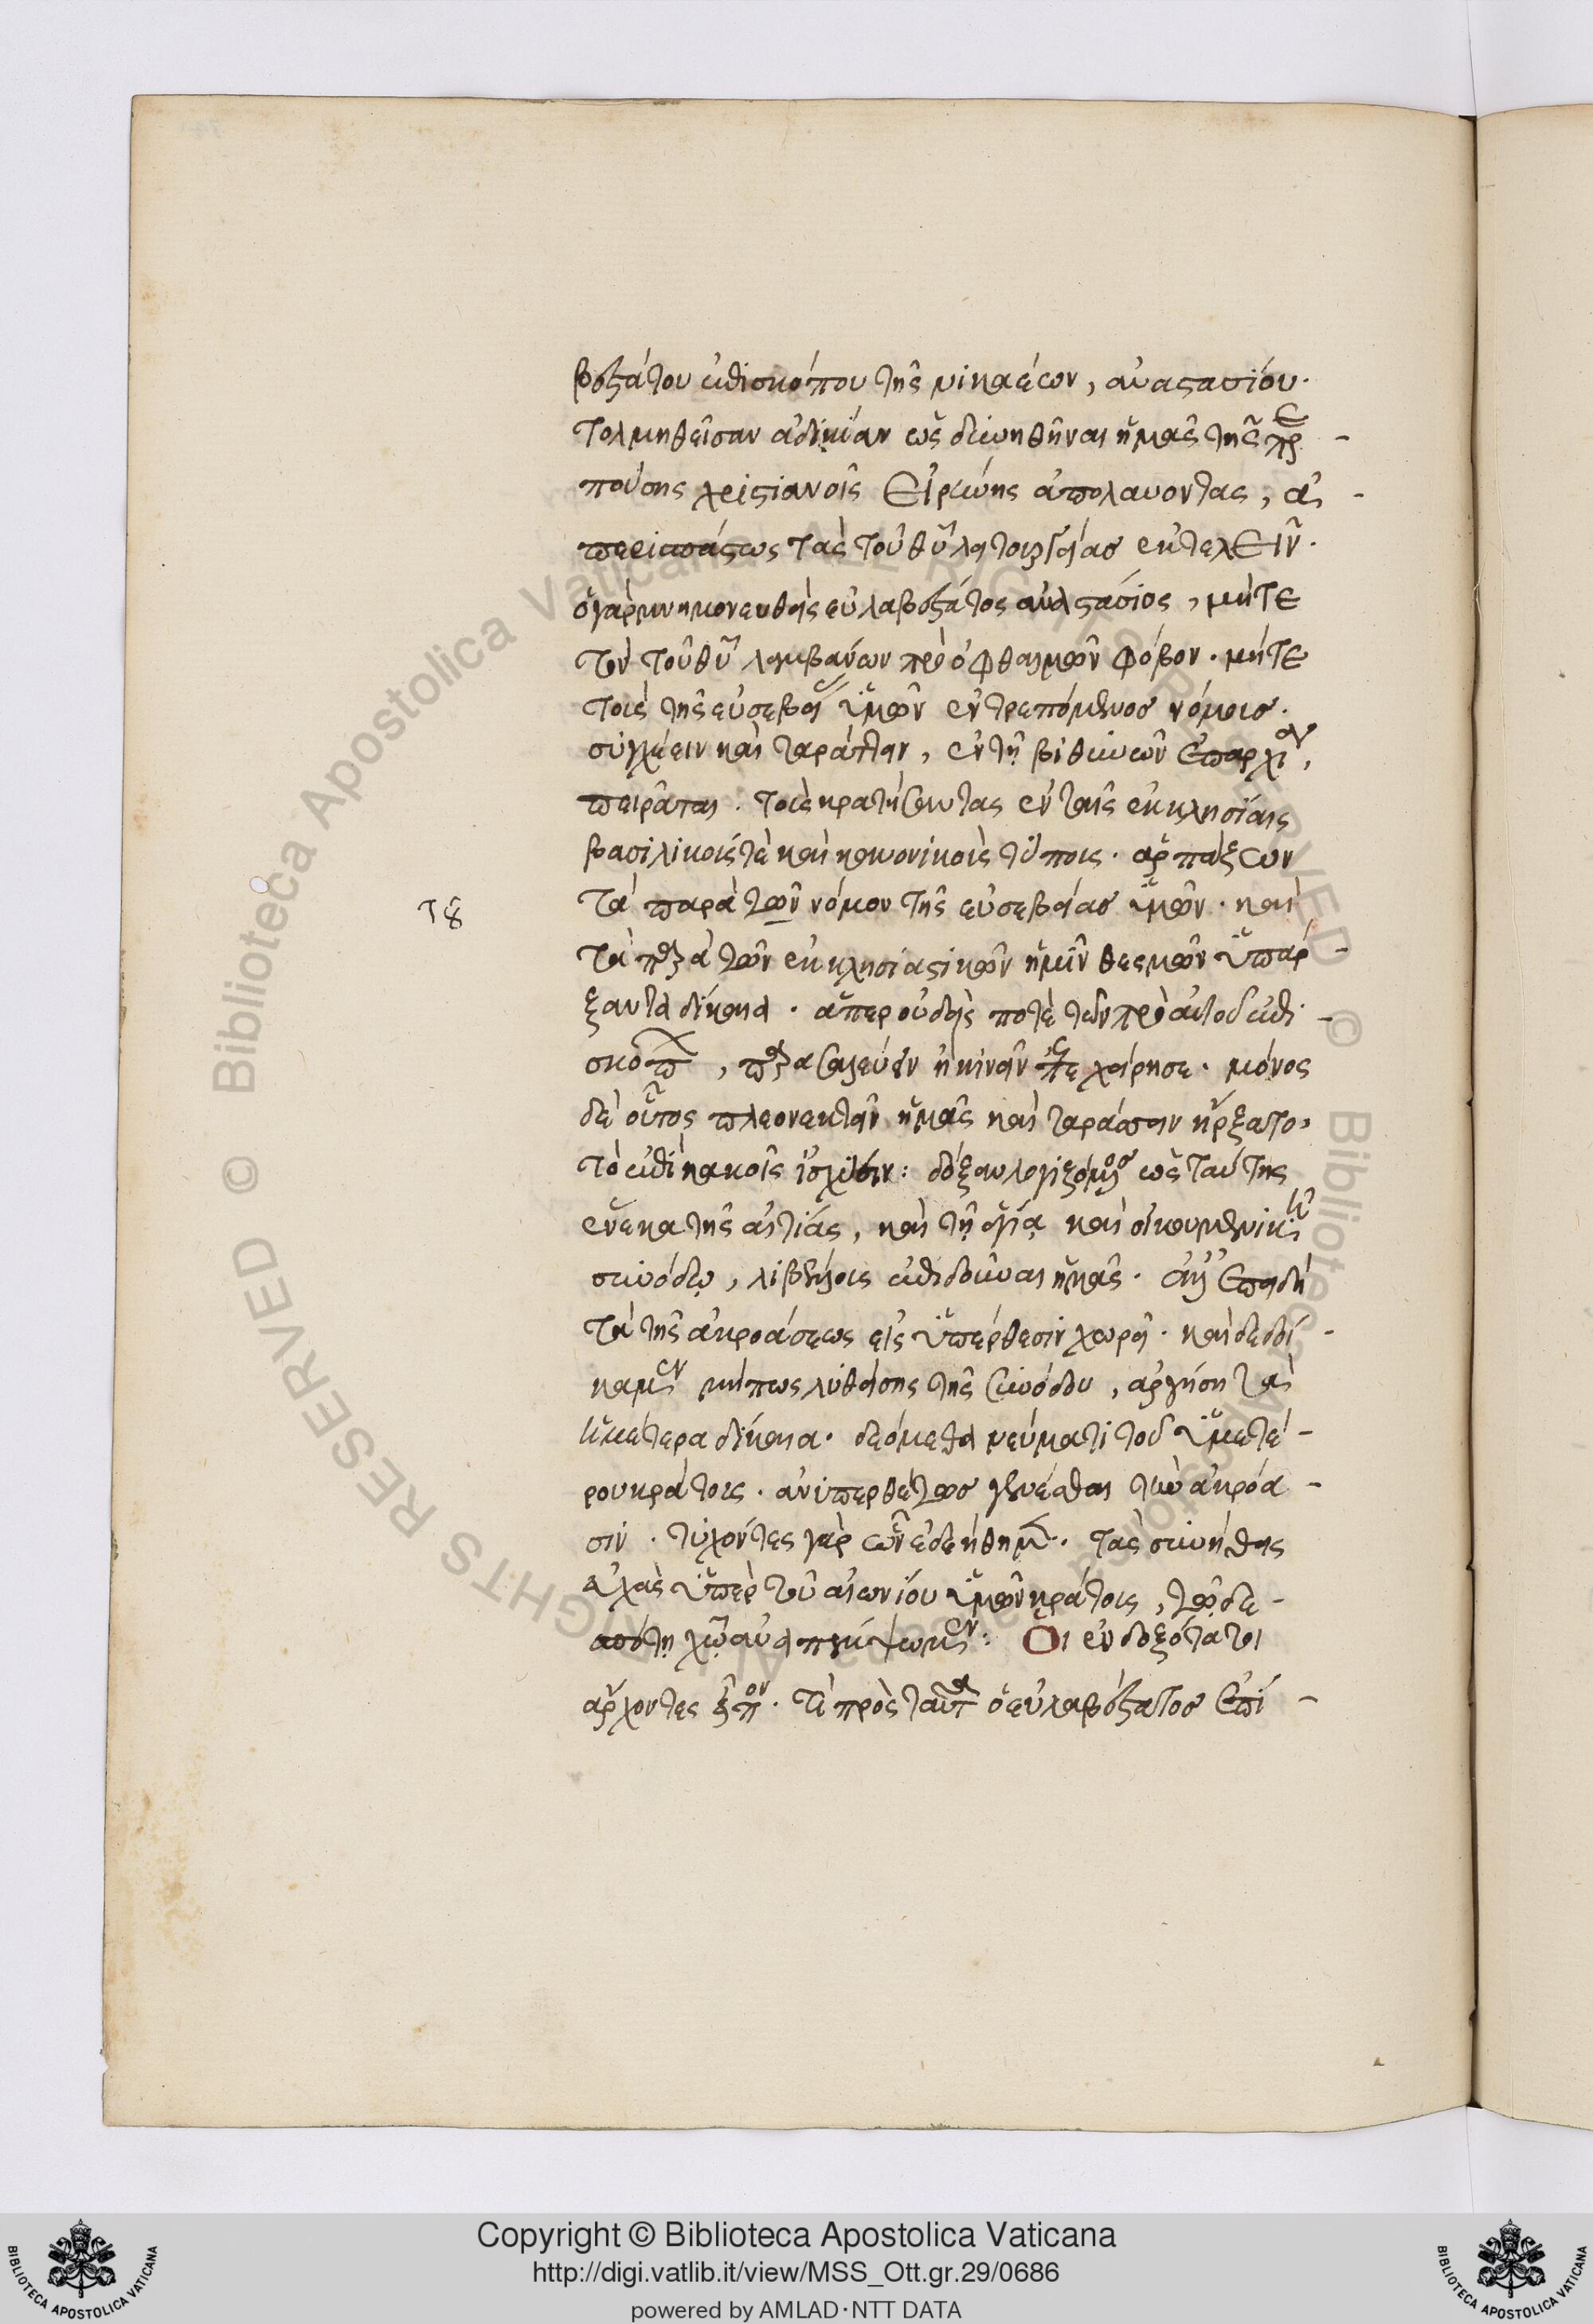 βεστάτου ἐπισκόπου τῆς νικαέων, ἀναστασίου.
τολμηθεῖσαν ἀδικίαν ὡς δεινηθῆναι ἡμᾶς τῆς πρε-
πούσης χριστιανοῖς εἰρήνης ἀπολαύοντας, ἀ-
περισπάστως τὰς τοῦ θῦ λειτουργίας ἐκτελεῖν.
ὁ γὰρ μνημονευθεὶς εὐλαβέστατος ἀναστάσιος, μήτε
τὸν τοῦ θῦ λαμβάνων πρὸ ὀφθαλμῶν φόβον. μήτε
τοῖς τῆς εὐσεβείας ὑμῶν ἐντρεπόμενος νόμοις.
συγχέειν καὶ ταράττειν, ἐν τῇ βιθυνῶν ἐπαρχία,
πειρᾶται. τοῖς κρατήσαντας ἐν ταῖς ἐκκλησίαις
βασιλικοῖς τὲ καὶ κανονικοῖς τύποις. ἁρπάζων
τὰ παρὰ τῶν νόμον τῆς εὐσεβείας ὑμῶν. καὶ
τὰ παρὰ τῶν ἐκκλησιαστικῶν ἡμῖν θεσμῶν ὑπάρ-
ξαντα δίκαια. ἅπερ οὐδεὶς ποτὲ τῶν πρὸ αὐτοῦ ἐπι-
σκόπων, παρασαλεύειν ἢ κινεῖν ἐπεχείρησε. μόνος
δὲ οὗτος πλεονεκτεῖν ἡμᾶς καὶ ταράσσειν ἤρξατο.
τὸ ἐπὶ κακοῖς ἰσχύειν: δόξαν λογιζόμενος ὡς ταύτης
ἕνεκα τῆς αἰτίας, καὶ τῇ ἁγίᾳ καὶ οἰκουμενικῇ
συνόδῳ, λιβέλλοις ἐπιδοῦναι ἡμᾶς. ἀλλ' ἐπειδὴ
τὰ τῆς ἀκροάσεως εἰς ὑπέρθεσιν χωρεῖ. καὶ δεδοί-
καμεν μήπως λυθείσης τῆς συνόδου, ἀργήσῃ τὰ
ἡμέτερα δίκαια. δεόμεθα νεύματι τοῦ ὑμετέ-
ρου κράτους. ἀνυπερθέτως γενέσθαι τὴν ἀκρόα-
σιν. τυχόντες γὰρ ὧν ἐδεήθημεν. τὰς συνήθεις
εὐχὰς ὑπὲρ τοῦ αἰωνίου ὑμῶν κράτους, τῷ δε-
σπότῃ χῶ ἀναπέμψωμεν: Οἱ ἐνδοξότατοι
ἄρχοντες εἶπον. τί πρὸς ταῦτα ὁ εὐλαβέστατος ἐπί-
Copyright © Biblioteca Apostolica Vaticana
http://digi.vatlib.it/view/MSS_Ott.gr.29/0686
powered by AMLAD·NTT DATA